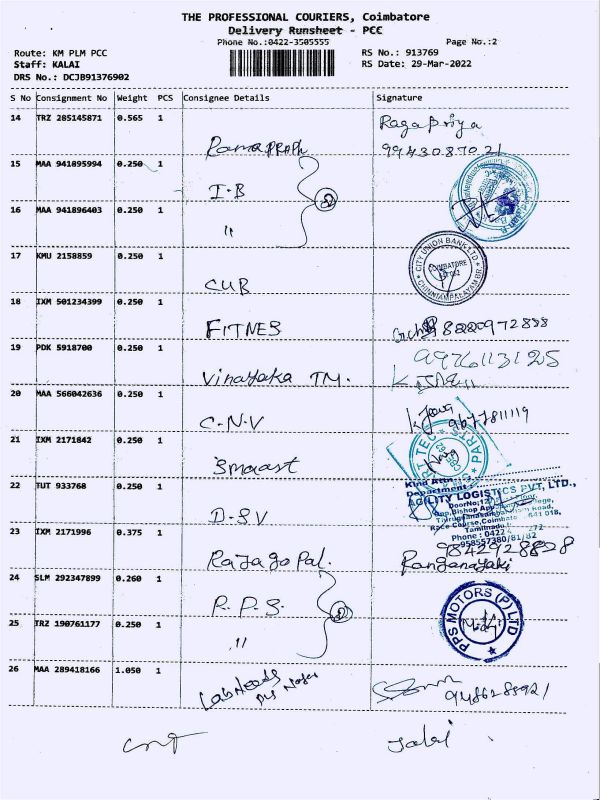 THE PROFESSIONAL COURIERS, Coimbatore
Delivery Runsheet - PCC
Phone No.:0422-3505555
Page No.:2
Route: KM PLM PCC
RS No.: 913769
Staff: KALAI
RS Date: 29-Mar-2022
DRS No.: DCJB91376902
S No Consignment No Weight PCS Consignee Details Signature
14 TRZ 285145871 0.565 1
Ragapriya
9943087021
15 MAA 941895994 0.250 1
I.B
2
16 MAA 941896403 0.250 1
"
17 KMU 2158859 0.250 1
CUB
CITY UNION BANK LTD
COIMBATORE
CHINNIAMPALAYAM BR.
18 IXM 501234399 0.250 1
FITNES
8220972888
19 PDK 5918700 0.250 1
Vinayaka TM.
9976113125
20 MAA 566042636 0.250 1
C.N.V
9677811119
21 IXM 2171842 0.250 1
Smaast
PARTS
22 TUT 933768 0.250 1
D.S.V
Kind Attn
Department
AGILITY LOGISTICS PVT, LTD.,
Race Course, Coimbatore 641 018,
Tamilnadu
Phone : 0422 272
958557380/81/82
23 IXM 2171996 0.375 1
Rajagopal.
9842928828
Ranganayaki
24 SLM 292347899 0.260 1
P.P.S.
2
25 TRZ 190761177 0.250 1
"
PPS MOTORS (P) LTD
26 MAA 289418166 1.050 1
Lab Needs